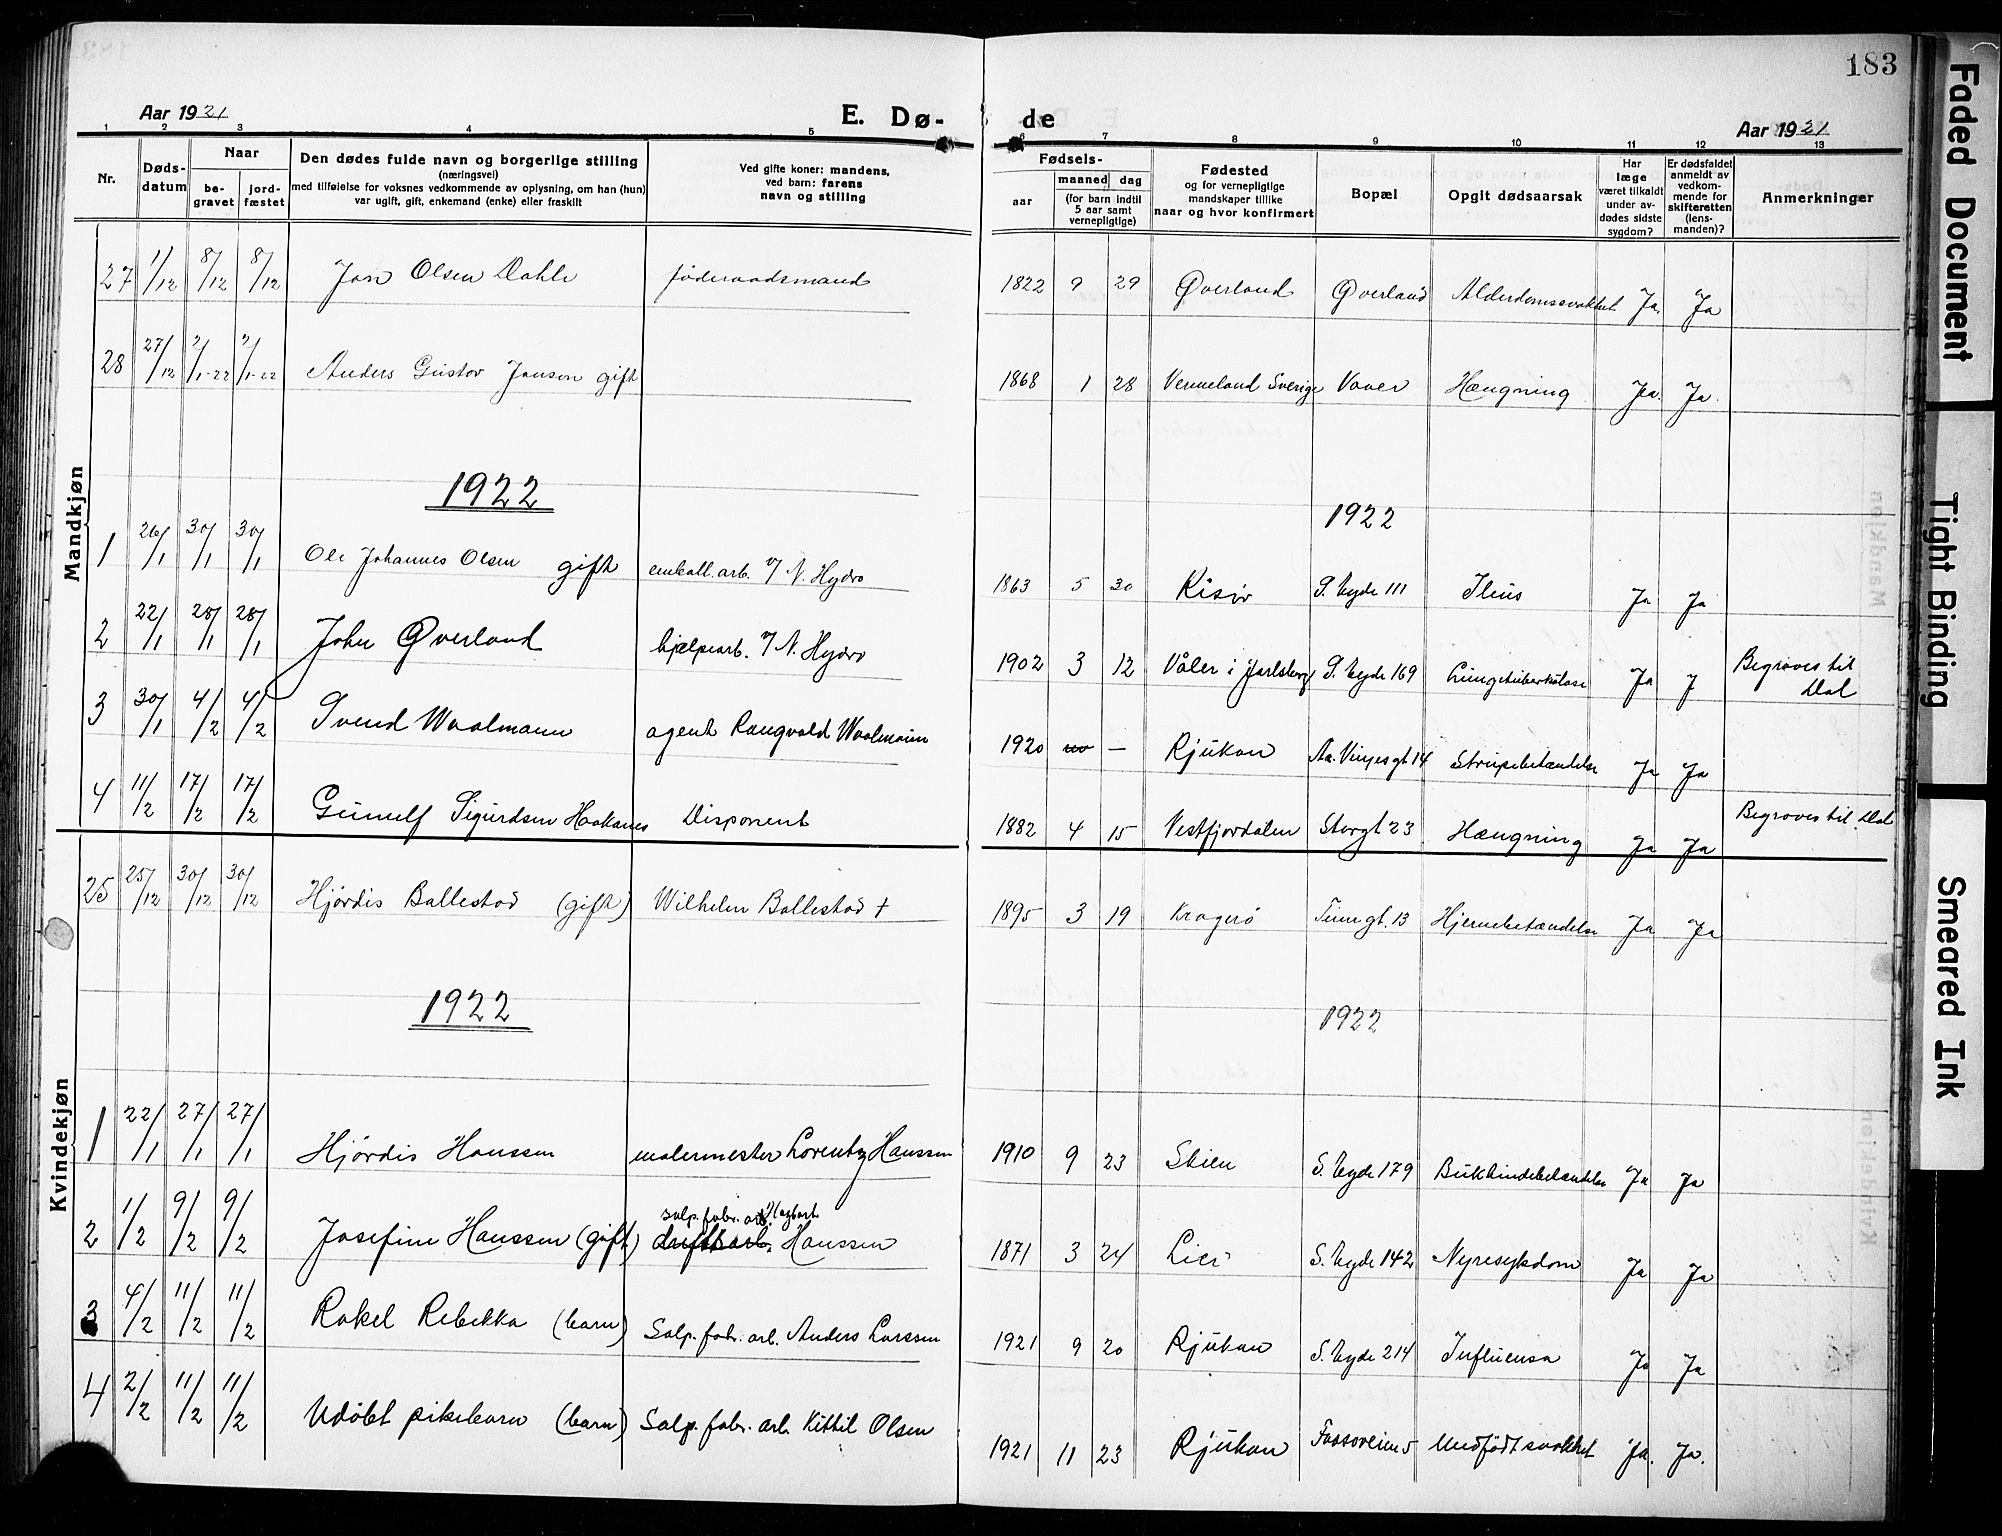 183
Aar 1921
E. Dø- de
Aar 1921
1 2 3 4 5 6 7 8 9 10 11 12 13
Nr.
Døds-
datum
Naar
be-
gravet
jord-
fæstet
Den dødes fulde navn og borgerlige stilling
(næringsvei)
med tilføielse for voksnes vedkommende av oplysning, om han (hun)
var ugift, gift, enkemand (enke) eller fraskilt
Ved gifte koner: mandens,
ved barn: farens
navn og stilling
Fødsels-
aar
maaned dag
(for barn indtil
5 aar samt
vernepligtige)
Fødested
og for vernepligtige
mandskaper tillike
naar og hvor konfirmert
Bopæl
Opgit dødsaarsak
Har
læge
været tilkaldt
under av-
dødes sidste
sygdom?
Er dødsfaldet
anmeldt av
vedkom-
mende for
skifteretten
(lens-
manden)?
Anmerkninger
Mandkjøn
27 1/12 8/12 8/12 Jon Olsen Dahle føderaadsmand 1822 9 29 Øverland Øverland Alderdomssvakhet Ja Ja
28 27/12 2/1-22 2/1-22 Anders Gustav Janson gift 1868 1 28 Vermeland Sverige Vaaer Hængning Ja Ja
1922 1922
1 26/1 30/1 30/1 Ole Johannes Olsen gift emball. arb. v/ N. Hydro 1863 5 30 Risør S. byde 111 Ileus Ja Ja
2 22/1 28/1 28/1 John Øverland hjælpearb. v/ N. Hydro 1902 3 12 Våler i Jarlsberg S. byde 169 Lungetuberkulose Ja J Begraves til
Dal
3 30/1 4/2 4/2 Svend Waalmann agent Rangvald Waalmann 1920 — Rjukan Aa. Vinjesgt 14 Strupebetændelse Ja Ja
4 11/2 17/2 17/2 Gunulf Sigurdsen Haakanes Disponent 1882 4 15 Vestfjordalen Storgt 23 Hængning Ja Ja Begraves til Dal
Kvindekjøn
25 25/12 30/12 30/12 Hjørdis Ballestad (gift) Wilhelm Ballestad + 1895 3 19 Kragerø Tinngt. 13 Hjernebetændelse Ja Ja
1922 1922
1 22/1 27/1 27/1 Hjørdis Hanssen malermester Lorentz Hanssen 1910 9 23 Skien S. byde 179 Bukhindebetændelse Ja Ja
2 1/2 9/2 9/2 Josefine Hanssen (gift) salp. fabr. arb. Hanssen 1871 3 24 Lier S. byde 142 Nyresykdom Ja Ja
3 4/2 11/2 11/2 Rakel Rebekka (barn) Salp. fabr. arb. Anders Larssen 1921 9 20 Rjukan S. byde 214 Influensa Ja Ja
4 2/2 11/2 11/2 Udøbt pikebarn (barn) Salp. fabr. arb. Kittil Olsen 1921 11 23 Rjukan Fossoveien 5 Medfødt svakhet Ja. Ja.
Faded Document
Tight Binding
Smeared Ink